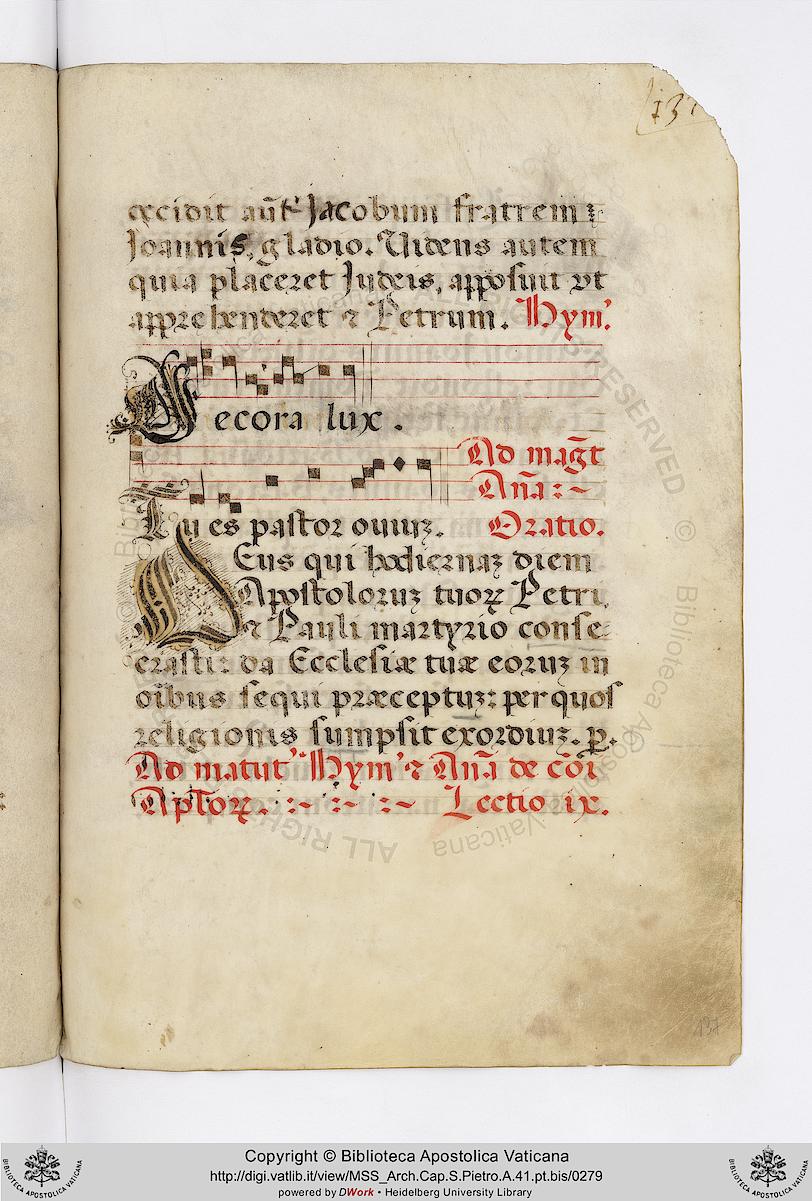 137
excidit aūt' Jacobum fratrem
Joannis, gladio. Videns autem
quia placeret Judeis, apposuit vt
apprehenderet ⁊ Petrum. Hym'.
Decora lux.
Ad mag̃t
Añā :~
Tu es pastor ouiuꝫ. Oratio.
Deus qui hodiernaꝫ diem
Apostoloruꝫ tuoꝝ Petri,
⁊ Pauli martyrio conse-
crasti: da Ecclesiæ tuæ eoruꝫ in
oībus sequi præceptuꝫ: per quos
religionis sumpsit exordiuꝫ. p.
Ad matut' Hym' ⁊ Añā de cōi
Aptoꝝ. :~ :~ :~ Lectio ix.
137
Copyright © Biblioteca Apostolica Vaticana
http://digi.vatlib.it/view/MSS_Arch.Cap.S.Pietro.A.41.pt.bis/0279
powered by DWork • Heidelberg University Library